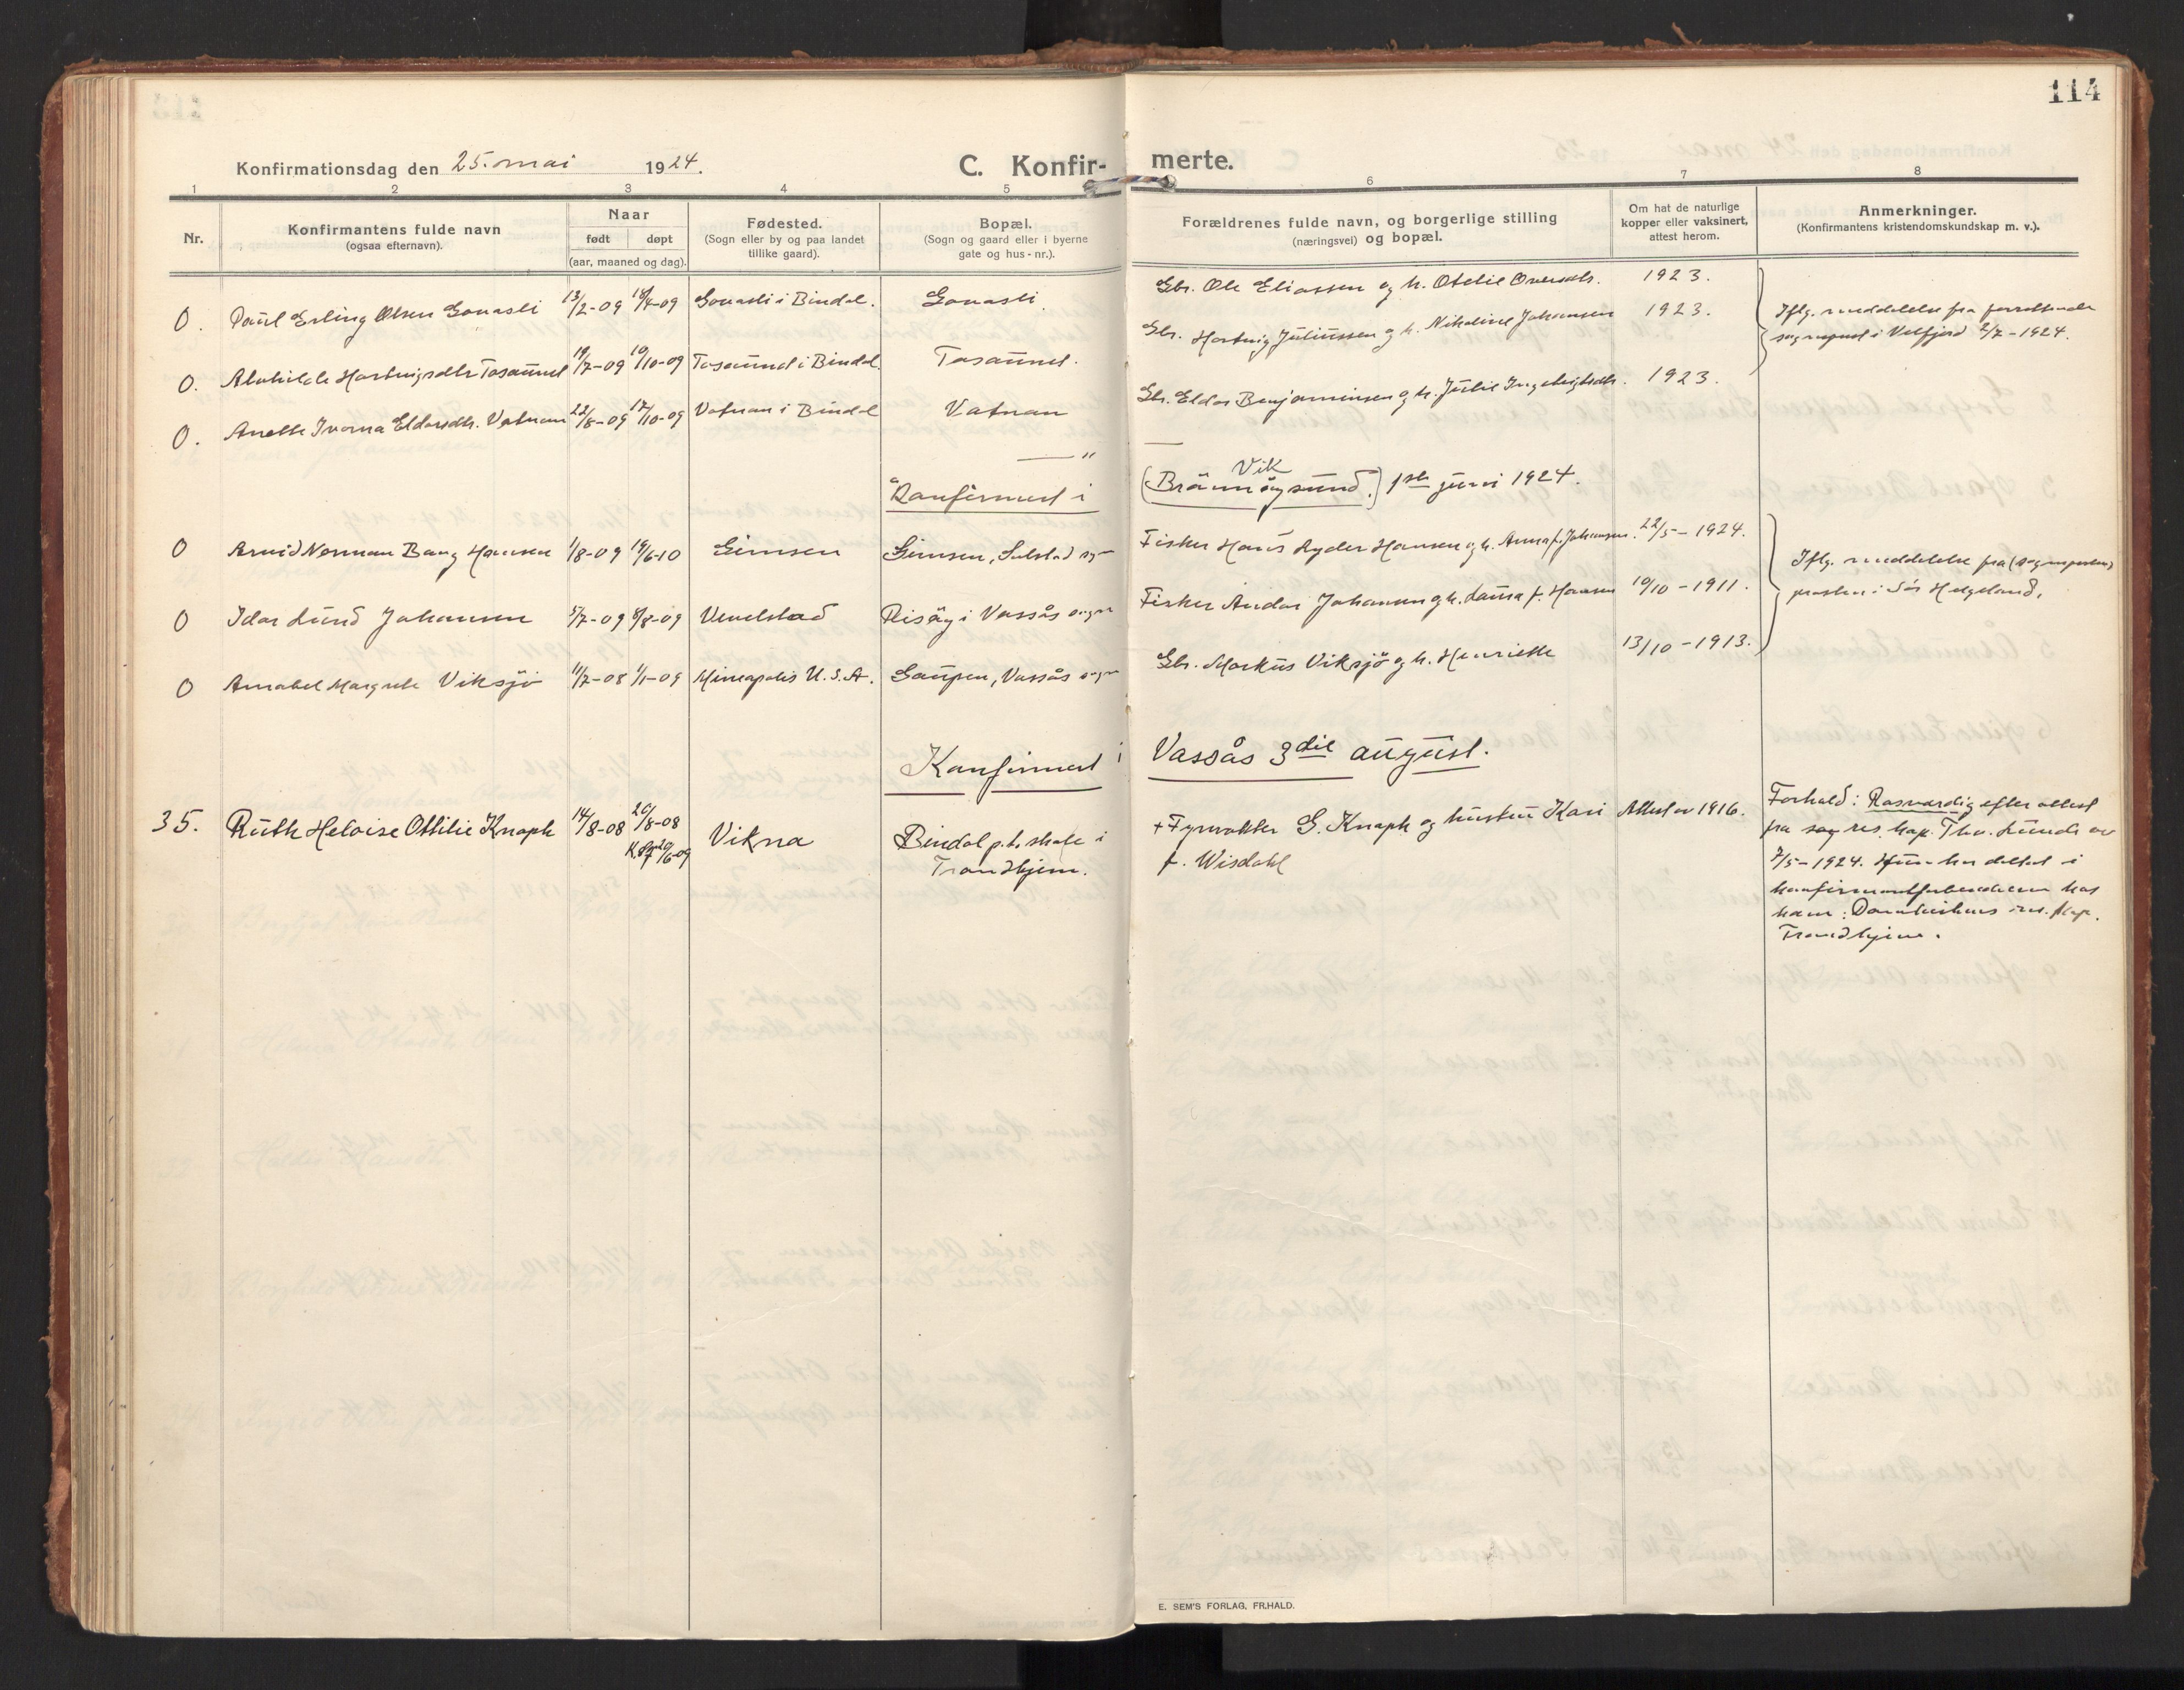 114
Konfirmationsdag den 25. mai 1924.
C. Konfirmerte.
1 2 3 4 5 6 7 8
Nr.
Konfirmantens fulde navn
(ogsaa efternavn).
Naar
født døpt
(aar, maaned og dag).
Fødested.
(Sogn eller by og paa landet
tillike gaard).
Bopæl.
(Sogn og gaard eller i byerne
gate og hus-nr.).
Forældrenes fulde navn, og borgerlige stilling
(næringsvei) og bopæl.
Om hat de naturlige
kopper eller vaksinert,
attest herom.
Anmerkninger.
(Konfirmantens kristendomskundskap m. v.).
0. Paul Erling Olsen Gonasli 13/2-09 18/4-09 Gonasli i Bindal. Gonasli. Gbr. Ole Eliassen og h. Otelie 1923.
0. Hartvigsdtr Tosaunet 19/7-09 10/10-09 Tosaunet i Bindal. Tosaunet. Gbr. Hartvig Juliussen og h. Nikoline Johansen 1923.
Iflg. meddelelse fra forrettende
sogneprest i Velfjord 2/7-1924.
0. Anette Ivorna Eldorsdtr. Vatnan 22/8-09 17/10-09 Vatnan i Bindal Vatnan Gbr. Eldor Benjaminsen og h. Julie Ingebrigtsdtr. 1923.
— "
Konfirmert i (Brännöysund.) Vik 1ste juni 1924.
0 Arvid Norman Bang Hansen 1/8-09 19/6-10 Gimsen Gimsen, Sulstad sogn Fisker Hans Ryder Hansen og h. Anna f. Johansen. 22/5-1924.
0 Idar Lund Johansen 5/7-09 8/8-09 Vevelstad Risöy i Vassås sogn Fisker Andor Johansen og h. Laura f. Hansen 10/10-1911.
0 Annabel Margrete Viksjö 11/7-08 1/1-09 Mineapolis U.S.A. Gaupen, Vassås sogn Gbr. Markus Viksjö og h. Henriette 13/10-1913.
Iflg. meddelelse fra (sognepresten)
prosten i Sör Helgeland.
Konfirmert i Vassås 3die august.
35. Ruth Heloise Ottilie Knaph 14/8-08 20/8-08 Vikna Bindal p.t. skole i
Trondhjem.
+ Fyrvokter G. Knaph og hustru Kari
f. Wisdahl
Attest av 1916.
Forhold: Rosværdig efter attest
fra sog res. kap. Thv. Lunde av
7/5-1924. Hun har deltat i
hos
ham: res. kap.
Trondhjem.
E. SEM'S FORLAG, FR.HALD.